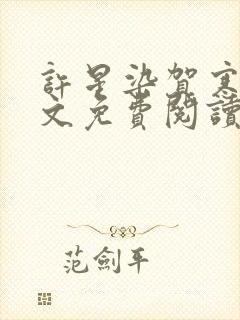 許星染賀寒
文免費閱讀
范劍平